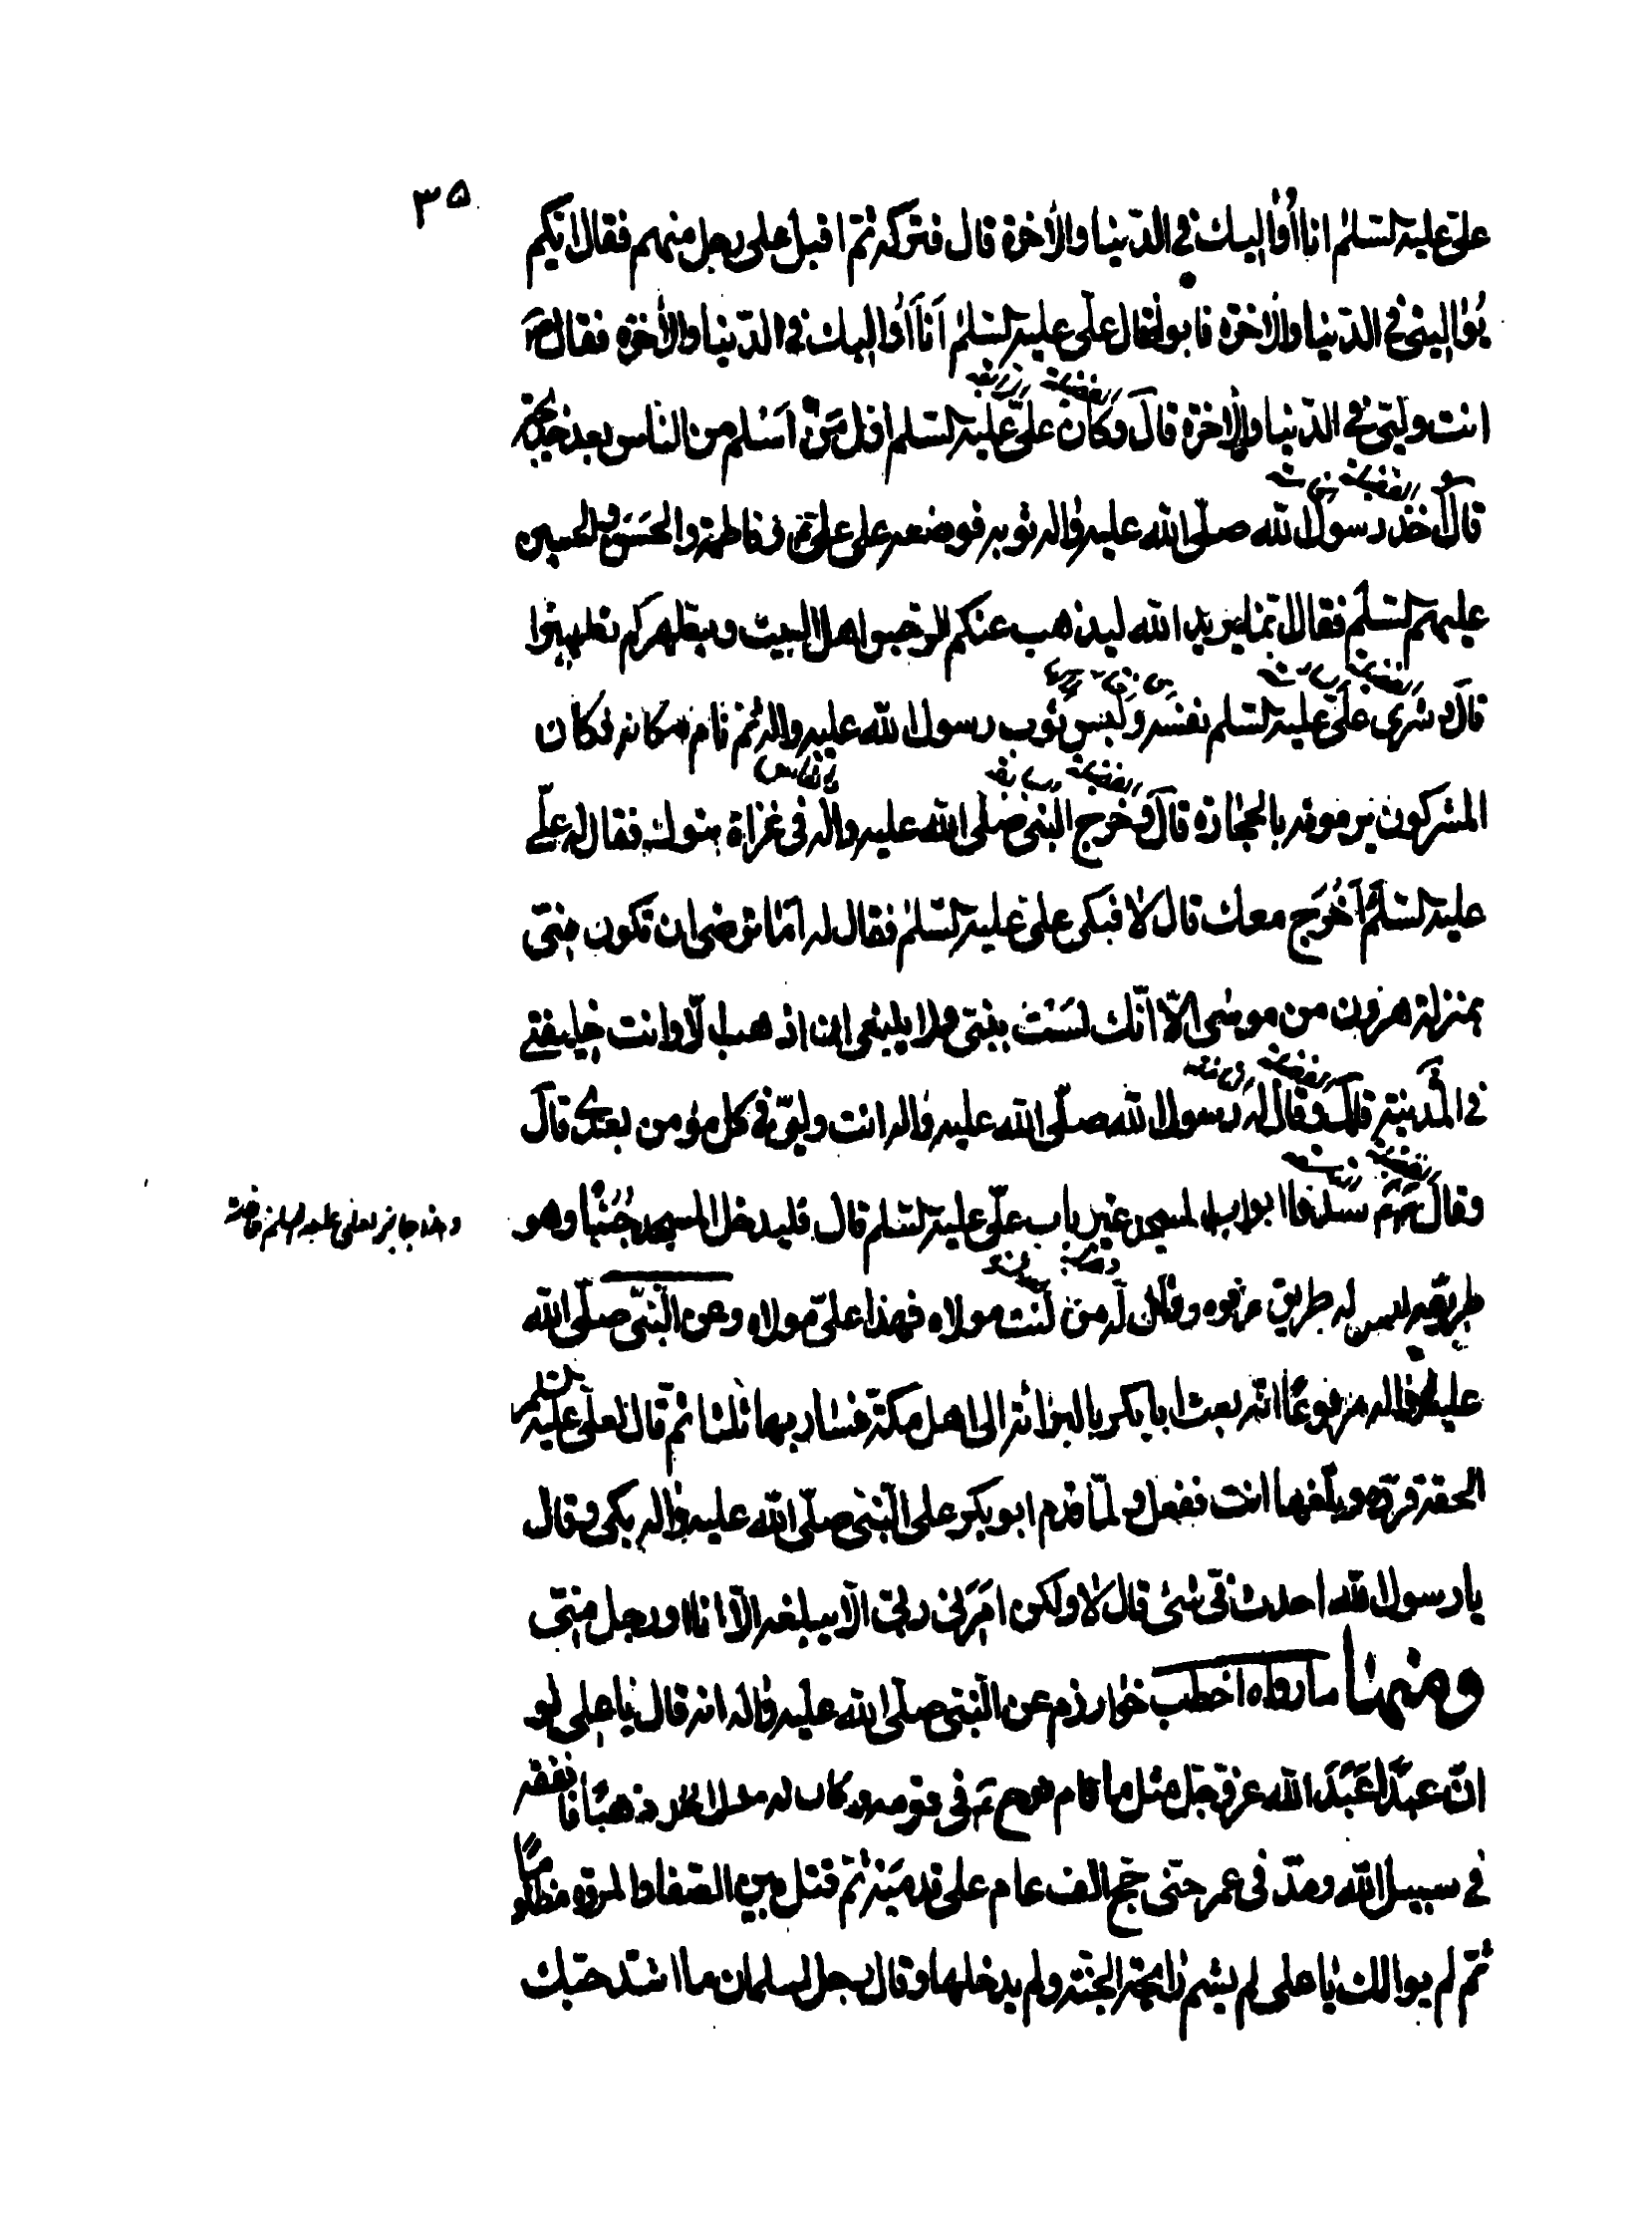 ٣٥
علیّ علیه السّلم انا اُوالیك فی الدّنیا والاٰخرة قال فتركه ثمّ اقبل علی رجل منهم فقال ایّكم
یُوالینی فی الدّنیا والاخرة فابوا فقال علیّ علیه السّلم اَنَا اُوالیك فی الدّنیا والاٰخرة فقال
انت ولیّی فی الدّنیا والاٰخرة قال وكان علیّ علیه السّلم اوّل مَنْ اَسْلم من الناس بعد خدیجة
الفضیلة
قال اخذ رسول الله صلّی الله علیه واله ثوبه فوضعه علی علیّ وفاطمة والحَسَن والحسین
الفضیلة
علیهم السّلم فقال انّما یرید الله لیذهب عنكم الرّجس اهل البیت ویطهركم تطهیرًا
قال وشری علیّ علیه السّلم نفسه ولبس ثوب رسول الله علیه واله ثمّ نام مكانه وكان
الفضیلة
المشركون یرمونه بالحجارة قال وخرج النّبی صلّی الله علیه واله فی غزاة تبوك فقال له علیّ
الفضیلة
علیه السّلم اَخْرُج معك قال لا فبكی علیّ علیه السّلم فقال له اَمَا ترضی ان تكون منّی
بمنزلة هرون من موسٰی الّا انّك لَسْتَ بنبیّ ولا ینبغی ان اذهب الّا وانت خلیفتی
فی المدینة قال وقال له رسول الله صلّی الله علیه واله انت ولیّی فی كل مؤمن بعدی قال
الفضیلة
وقال سدّوا ابواب المسجد غیر باب علیّ علیه السّلم قال فیدخل المسجد جُنُبًا وهو
طریقه لیس له طریق غیره وقال له من كنت مولاه فهذا علیّ مولاه وعن النّبیّ صلّی الله
علیه واله مرفوعًا انّه بعث ابا بكر بالبرائة الی اهل مكة فسار بها ثلثا ثمّ قال لعلی علیه السلم
الحقه فردّه وبلّغها انت ففعل ولمّا قدم ابو بكر علی النّبیّ صلّی الله علیه واله بكی وقال
یا رسول الله احدث فیّ شئ قال لا ولكن اَمَرَنی ربّی الّا یبلغه الّا انا او رجل منّی
ومنها ما رواه اخطب خوارزم عن النّبیّ صلّی الله علیه واله انه قال یا علی لو
انّ عبدًا عَبَدَ الله عزّ وجلّ مثل ما قام نوح فی قومه وكان له مثل احد ذهبًا فانفقه
فی سبیل الله ومدّ فی عمره حتی حجّ الف عام علی قدمیه ثمّ قتل بین الصّفا والمروة مظلومًا
ثمّ لم یوالك یا علی لم یشم رایحة الجنّة ولم یدخلها وقال رجل لسلمان ما اشدّ حبّك